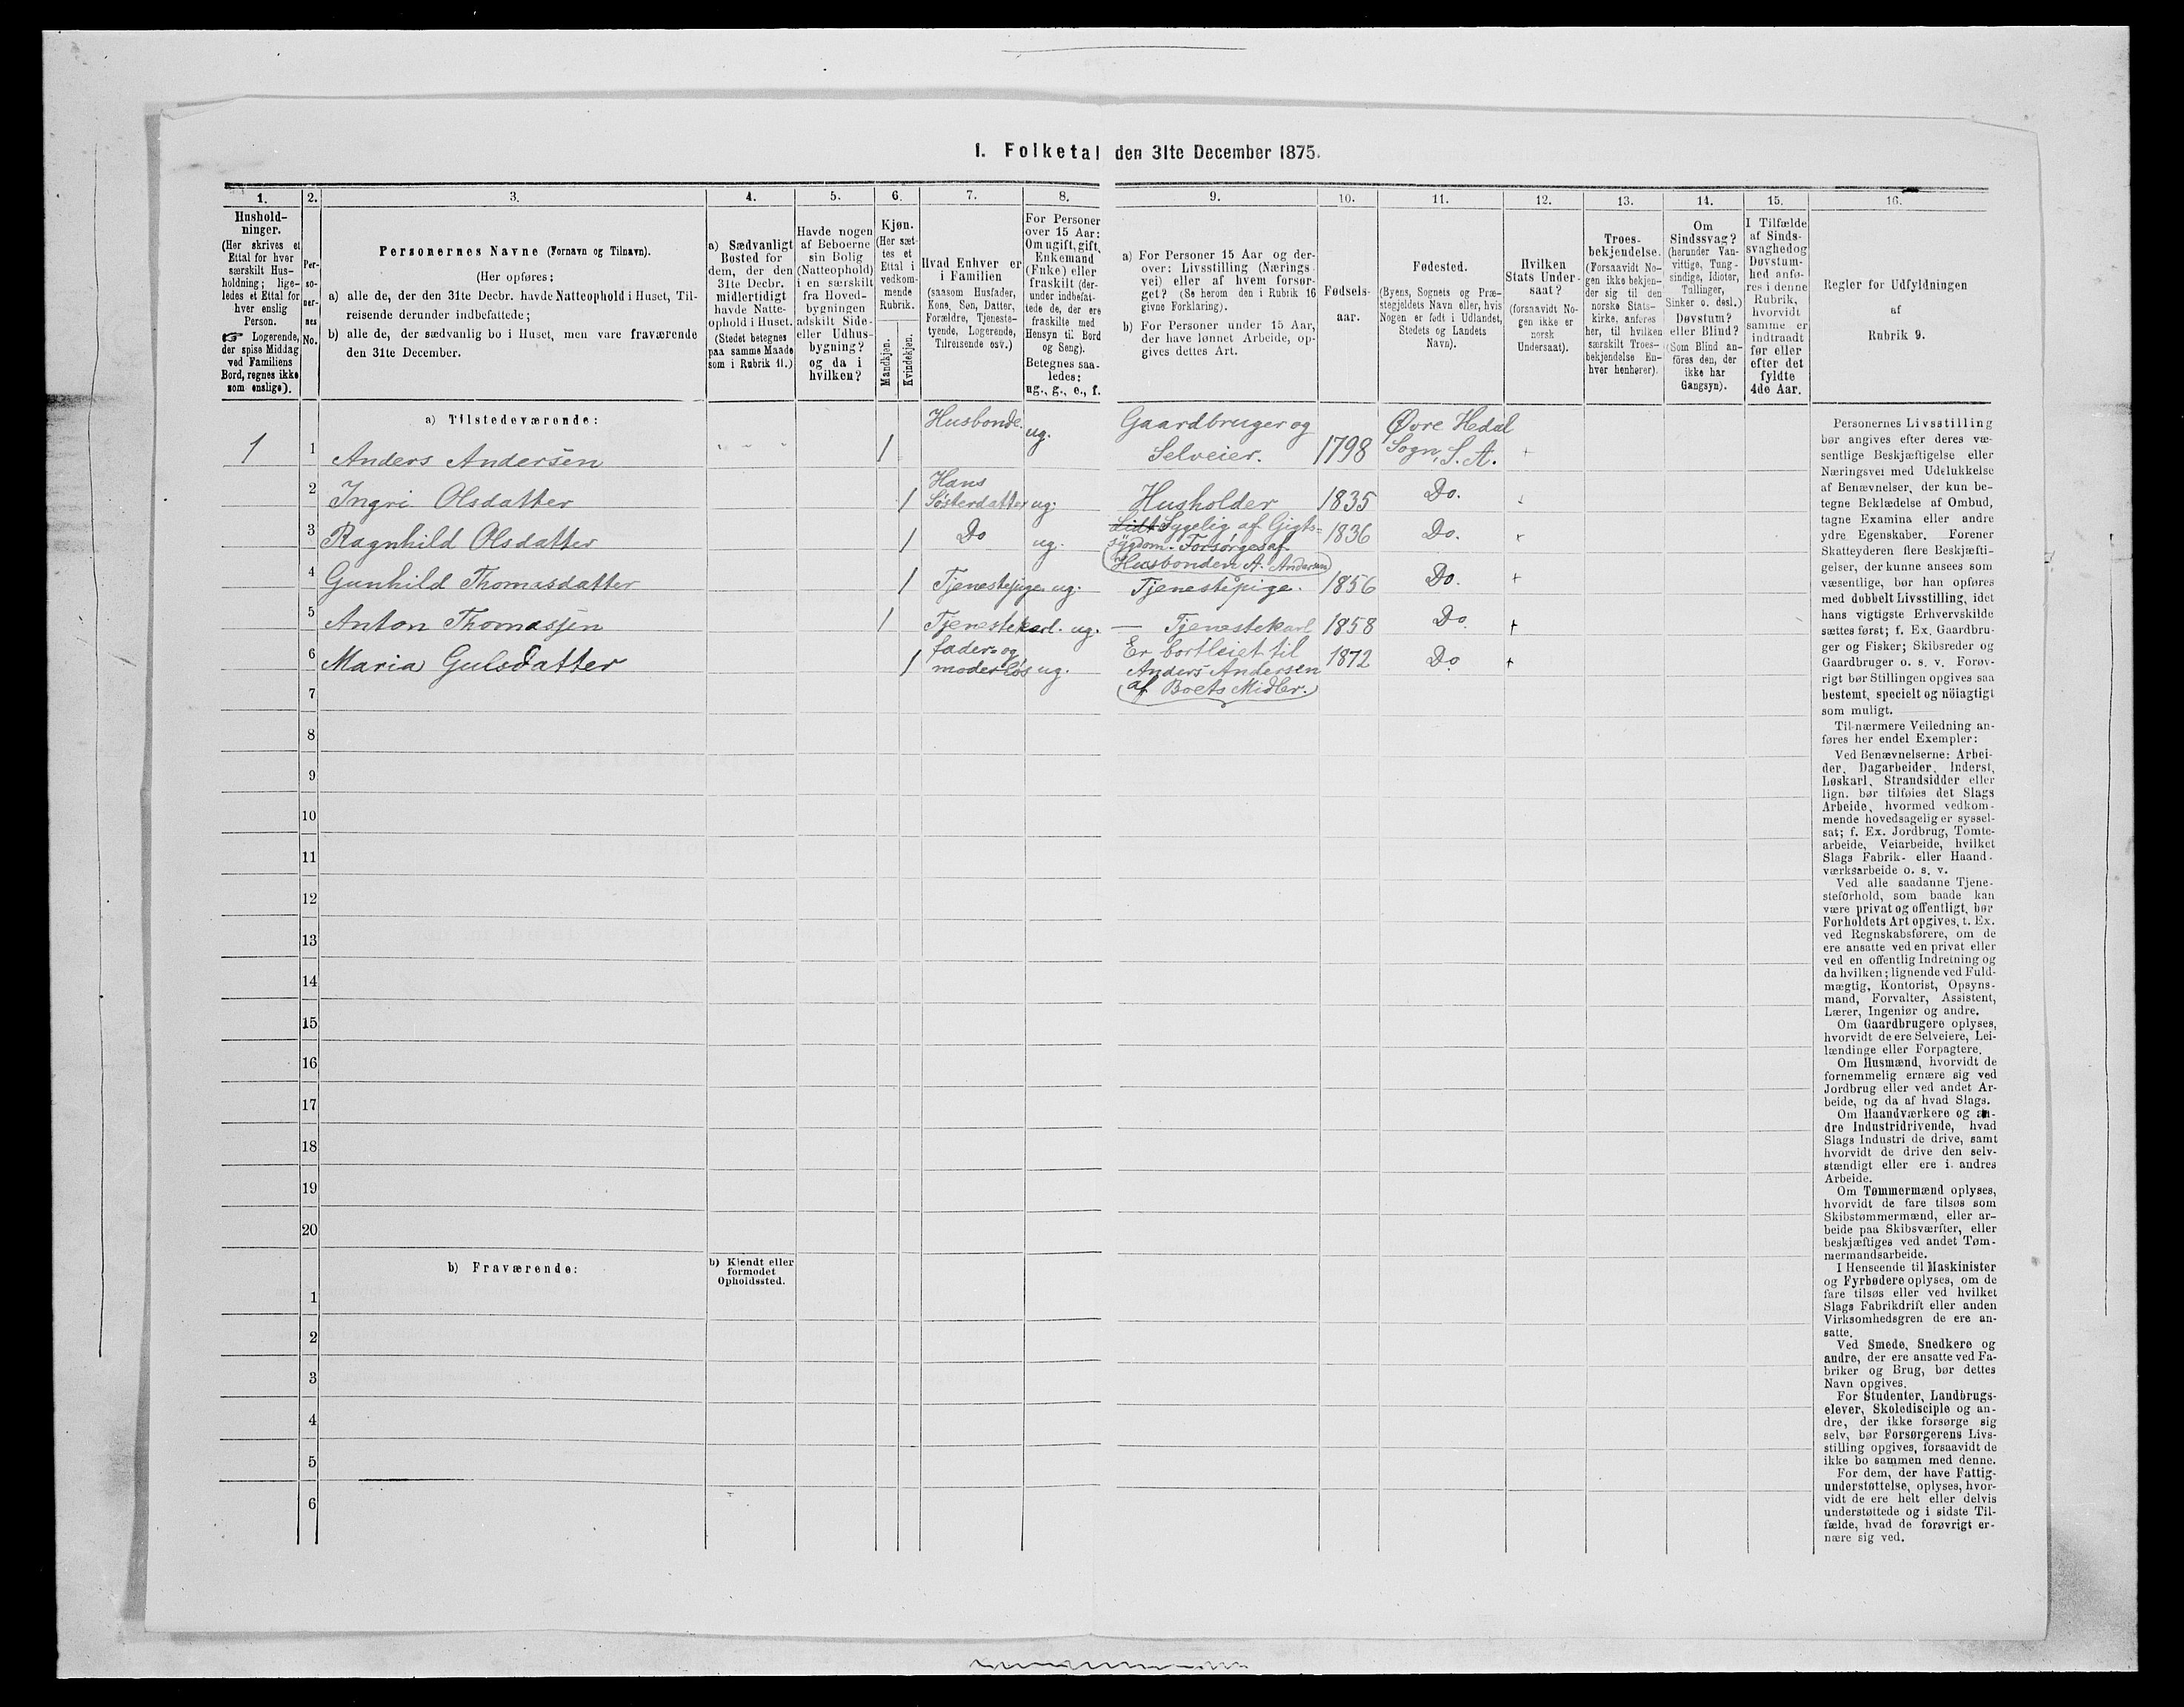 1. Folketal den 31te December 1875.
1.
2.
3.
4.
5.
6.
7.
8.
9.
10.
11.
12.
13.
14.
15.
16.
Hushold-
ninger.
(Her skrives et
Ettal for hver
særskilt Hus-
holdning; lige-
ledes et Ettal for
hver enslig
Person.
☞ Logerende,
der spise Middag
ved Familiens
Bord, regnes ikke
som enslige).
Per-
so-
ner-
nes
No.
Personernes Navne (Fornavn og Tilnavn).
(Her opføres:
a) alle de, der den 31te Decbr. havde Natteophold i Huset, Til-
reisende derunder indbefattede;
b) alle de, der sædvanlig bo i Huset, men vare fraværende
den 31te December.
a) Sædvanligt
Bosted for
dem, der den
31te Decbr.
midlertidigt
havde Natte-
ophold i Huset.
(Stedet betegnes
paa samme Maade
som i Rubrik 11.)
Havde nogen
af Beboerne
sin Bolig
(Natteophold)
i en særskilt
fra Hoved-
bygningen
adskilt Side-
eller Udhus-
bygning?
og da i
hvilken?
Kjøn.
(Her sæt-
tes et
Ettal i
vedkom-
mende
Rubrik.
Mandkjøn.
Kvindekjøn.
Hvad Enhver er
i Familien
(saasom Husfader,
Kone, Søn, Datter,
Forældre, Tjeneste-
tyende, Logerende,
Tilreisende osv.)
For Personer
over 15 Aar:
Om ugift, gift,
Enkemand
(Enke) eller
fraskilt (der-
under indbefat-
tede de, der ere
fraskilte med
Hensyn til Bord
og Seng).
Betegnes saa-
ledes:
ug., g., e., f.
a) For Personer 15 Aar og der-
over: Livsstilling (Nærings-
vei) eller af hvem forsør-
get? (Se herom den i Rubrik 16
givne Forklaring).
b) For Personer under 15 Aar,
der have lønnet Arbeide, op-
gives dettes Art.
Fødsels-
aar.
Fødested.
(Byens, Sognets og Præ-
stegjeldets Navn eller, hvis
Nogen er født i Udlandet,
Stedets og Landets
Navn).
Hvilken
Stats Under-
saat?
(forsaavidt No-
gen ikke er
norsk
Undersaat).
Troes-
bekjendelse.
(Forsaavidt No-
gen ikke bekjen-
der sig til den
norske Stats-
kirke, anføres
her, til hvilken
særskilt Troes-
bekjendelse En-
hver henhører).
Om
Sindssvag?
(herunder Van-
vittige, Tung-
sindige, Idioter,
Tullinger,
Sinker o. desl.)
Døvstum?
eller Blind?
(Som Blind an-
føres den, der
ikke har
Gangsyn).
I Tilfælde
af Sinds-
svaghed og
Døvstum-
hed anfø-
res i denne
Rubrik,
hvorvidt
samme er
indtraadt
før eller
efter det
fyldte
4de Aar.
Regler for Udfyldningen
af
Rubrik 9.
a) Tilstedeværende:
1 1 Anders Andersen 1 Husbonde. ug. Gaardbruger og Selveier. 1798 Øvre Hedal Sogn, S. A. +
2 Ingri Olsdatter 1 Hans Søsterdatter ug. Husholder 1835 Do.
3 Ragnhild Olsdatter 1 Do ug. Lidt Sygelig af Gigts- sygdom. Forsørges af Husbonden A. Andersen 1836 Do.
4 Gunhild Thomasdatter 1 Tjenestepige ug. Tjenestepige. 1856 Do. +
5 Anton Thomassen 1 Tjenestekarl. ug. — Tjenestekarl 1858 Do. +
6 Maria Gulsdatter 1 fader og moderløs ug. Er bortleiet til Anders Andersen af Boets Midler. 1872 Do. +
7
8
9
10
11
12
13
14
15
16
17
18
19
20
b) Fraværende:
b) Kjendt eller
formodet
Opholdssted.
1
2
3
4
5
6
Personernes Livsstilling
bør angives efter deres væ-
sentlige Beskjæftigelse eller
Næringsvei med Udelukkelse
af Benævnelser, der kun be-
tegne Beklædelse af Ombud,
tagne Examina eller andre
ydre Egenskaber. Forener
Skatteyderen flere Beskjæfti-
gelser, der kunne ansees som
væsentlige, bør han opføres
med dobbelt Livsstilling, idet
hans vigtigste Erhvervskilde
sættes først; f. Ex. Gaardbru-
ger og Fisker; Skibsreder og
Gaardbruger o. s. v. Forøv-
rigt bør Stillingen opgives saa
bestemt, specielt og nöiagtigt
som muligt.
Til nærmere Veiledning an-
føres her endel Exempler:
Ved Benævnelserne: Arbei-
der, Dagarbeider, Inderst,
Løskarl, Strandsidder eller
lign. bør tilføies det Slags
Arbeide, hvormed vedkom-
mende hovedsagelig er syssel-
sat; f. Ex. Jordbrug, Tomte-
arbeide, Veiarbeide, hvilket
Slags Fabrik- eller Haand-
værksarbeide o. s. v.
Ved alle saadanne Tjene-
steforhold, som baade kan
være privat og offentligt, bør
Forholdets Art opgives, t. Ex.
ved Regnskabsførere, om de
ere ansatte ved en privat eller
ved en offentlig Indretning og
da hvilken; lignende ved Fuld-
mægtig, Kontorist, Opsyns-
mand, Forvalter, Assistent,
Lærer, Ingeniør og andre.
Om Gaardbrugere oplyses,
hvorvidt de ere Selveiere, Lei-
lændinge eller Forpagtere.
Om Husmænd, hvorvidt de
fornemmelig ernære sig ved
Jordbrug eller ved andet Ar-
beide, og da af hvad Slags.
Om Haandværkere og an-
dre Industridrivende, hvad
Slags Industri de drive, samt
hvorvidt de drive den selv-
stændigt eller ere i andres
Arbeide.
Om Tømmermænd oplyses,
hvorvidt de fare tilsøs som
Skibstømmermænd, eller ar-
beide paa Skibsværfter, eller
beskjæftiges ved andet Tøm-
mermandsarbeide.
I Henseende til Maskinister
og Fyrbødere oplyses, om de
fare tilsøs eller ved hvilket
Slags Fabrikdrift eller anden
Virksomhedsgren de ere an-
satte.
Ved Smede, Snedkere og
andre, der ere ansatte ved Fa-
briker og Brug, bør dettes
Navn opgives.
For Studenter, Landbrugs-
elever, Skoledisciple og an-
dre, der ikke forsørge sig
selv, bør Forsørgerens Livs-
stilling opgives, forsaavidt de
ikke bo sammen med denne.
For dem, der have Fattig-
understøttelse, oplyses, hvor-
vidt de ere helt eller delvis
understøttede og i sidste Til-
fælde, hvad de forøvrigt er-
nære sig ved.